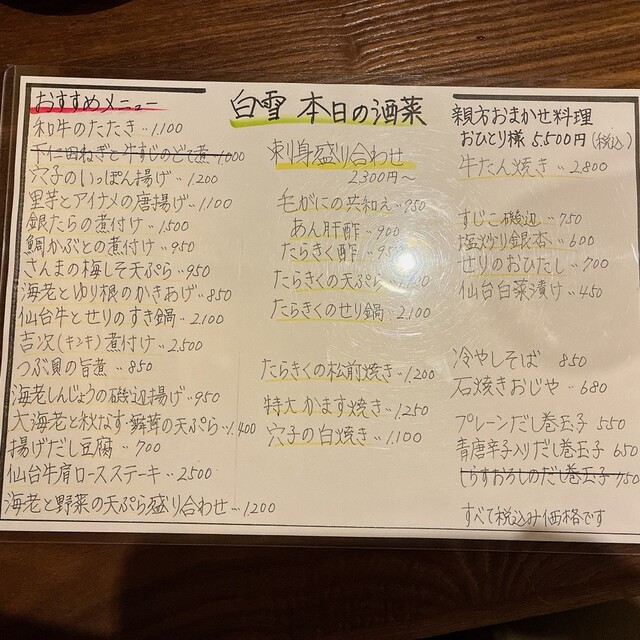 白雪 本日の酒菜
おすすめメニュー
和牛のたたき‥1,100
下仁田ねぎと牛すじのどて煮‥1,000
穴子のいっぽん揚げ‥1,200
里芋とアイナメの唐揚げ‥1,100
銀たらの煮付け‥1,500
鯛かぶとの煮付け‥950
さんまの梅しそ天ぷら‥950
海老とゆり根のかきあげ‥850
仙台牛とせりのすき鍋‥2,100
吉次(キンキ)煮付け‥2,500
つぶ貝の旨煮‥850
海老しんじょうの磯辺揚げ‥950
大海老と秋なす 舞茸の天ぷら‥1,400
揚げだし豆腐‥700
仙台牛肩ロースステーキ‥2500
海老と野菜の天ぷら盛り合わせ‥1200
刺身盛り合わせ
2300円〜
毛がにの共和え‥950
あん肝酢‥900
たらきく酢‥
たらきくの天ぷら
たらきくのせり鍋‥2,100
たらきくの松前焼き‥1,200
特大かます焼き‥1,250
穴子の白焼き‥1,100
親方おまかせ料理
おひとり様 5,500円(税込)
牛たん焼き‥2,800
すじこ磯辺‥750
塩煎り銀杏‥600
せりのおひたし‥700
仙台白菜漬け‥450
冷やしそば 850
石焼きおじや‥680
プレーンだし巻玉子 550
青唐辛子入りだし巻玉子 650
しらすおろしのだし巻玉子 750
すべて税込み価格です